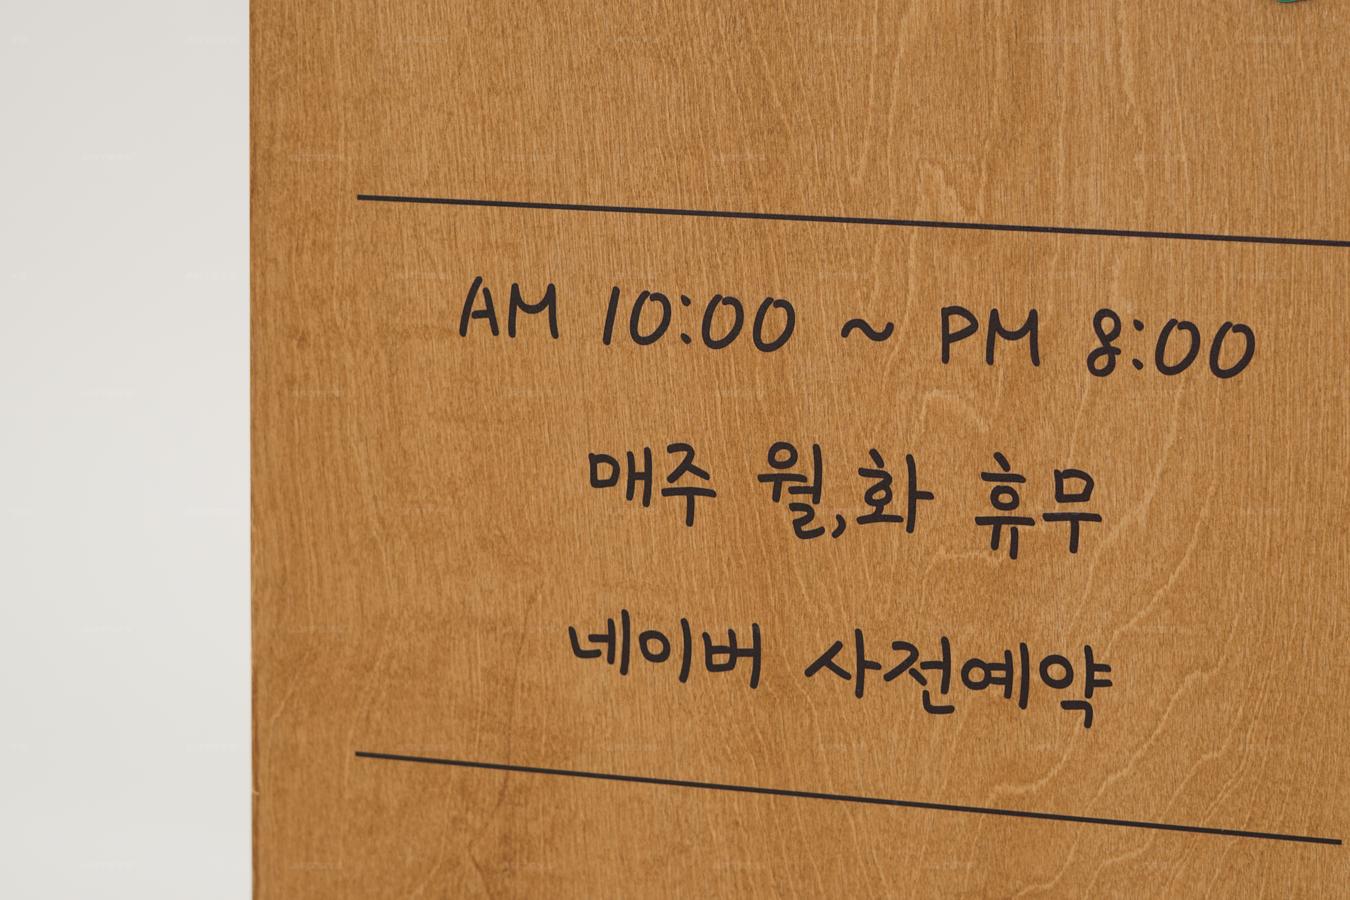 AM 10:00 ~ PM 8:00
매주 월,화 휴무
네이버 사전예약